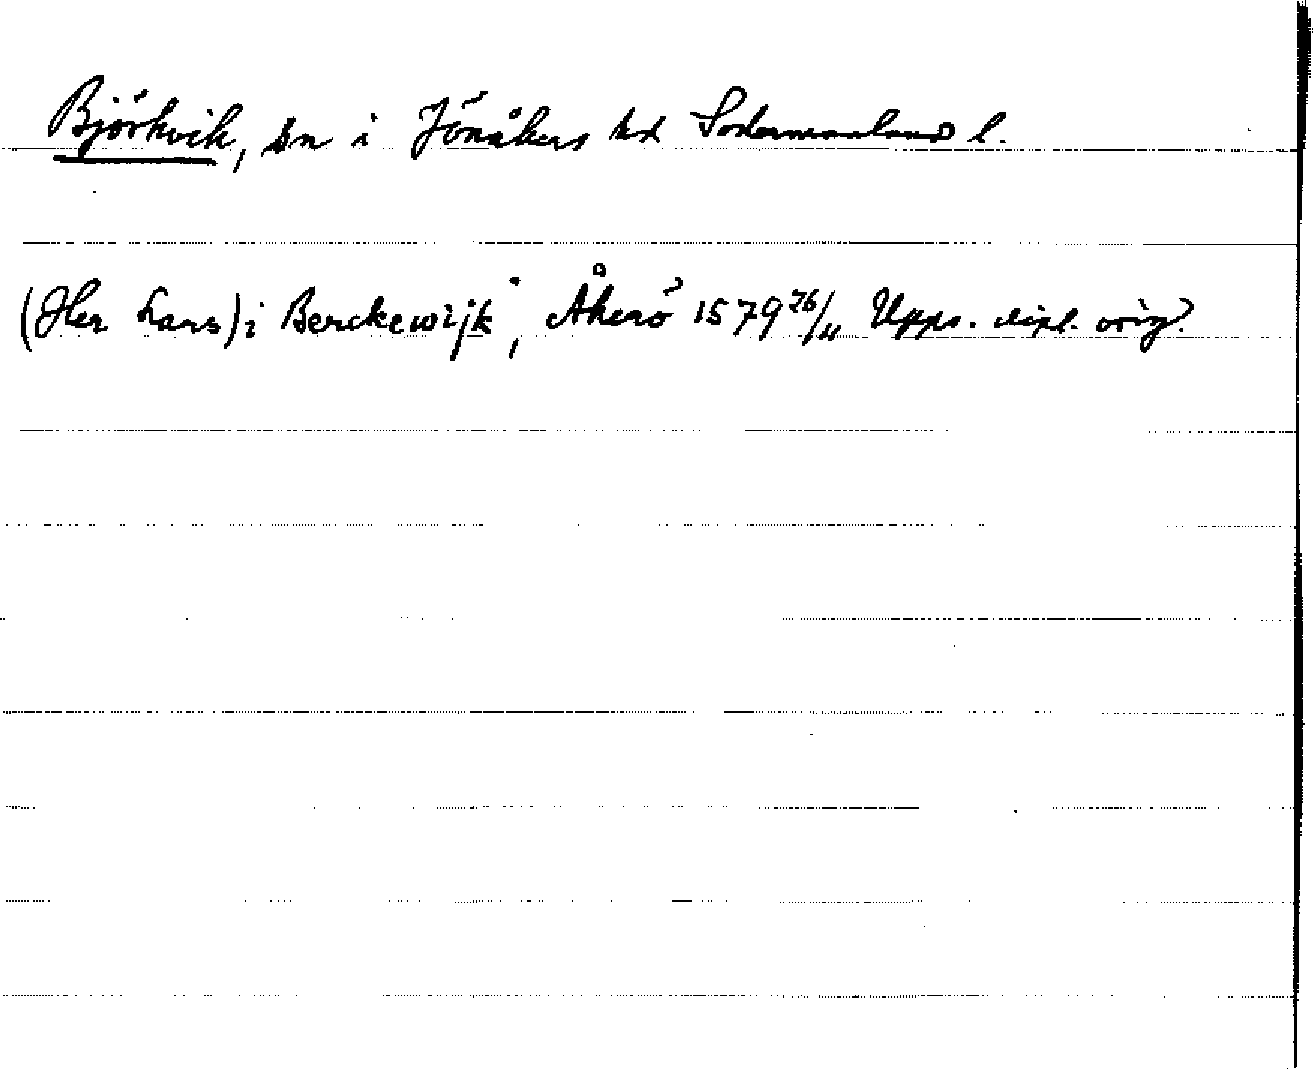 Björkvik, sn i Jönåkers hd Södermanlands l.
(Her Lars) i Berckewijk, Åkerö 1579 26/11 Upps. dipl. orig.